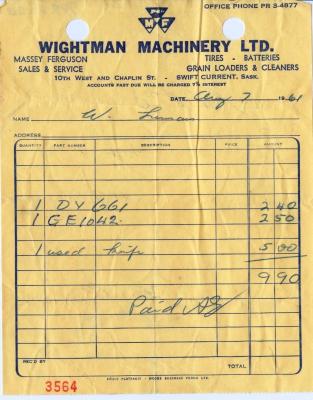 OFFICE PHONE PR 3-4877
MF
WIGHTMAN MACHINERY LTD.
MASSEY FERGUSON TIRES - BATTERIES
SALES & SERVICE GRAIN LOADERS & CLEANERS
10TH WEST AND CHAPLIN ST. - SWIFT CURRENT, SASK.
ACCOUNTS PAST DUE WILL BE CHARGED 7% INTEREST
DATE Aug 7 1961
NAME W.
ADDRESS
QUANTITY PART NUMBER DESCRIPTION PRICE AMOUNT
1 DY 661 2 40
1 GE1042 2 50
1 used knife 5 00
9 90
Paid
REC'D BY TOTAL
3564